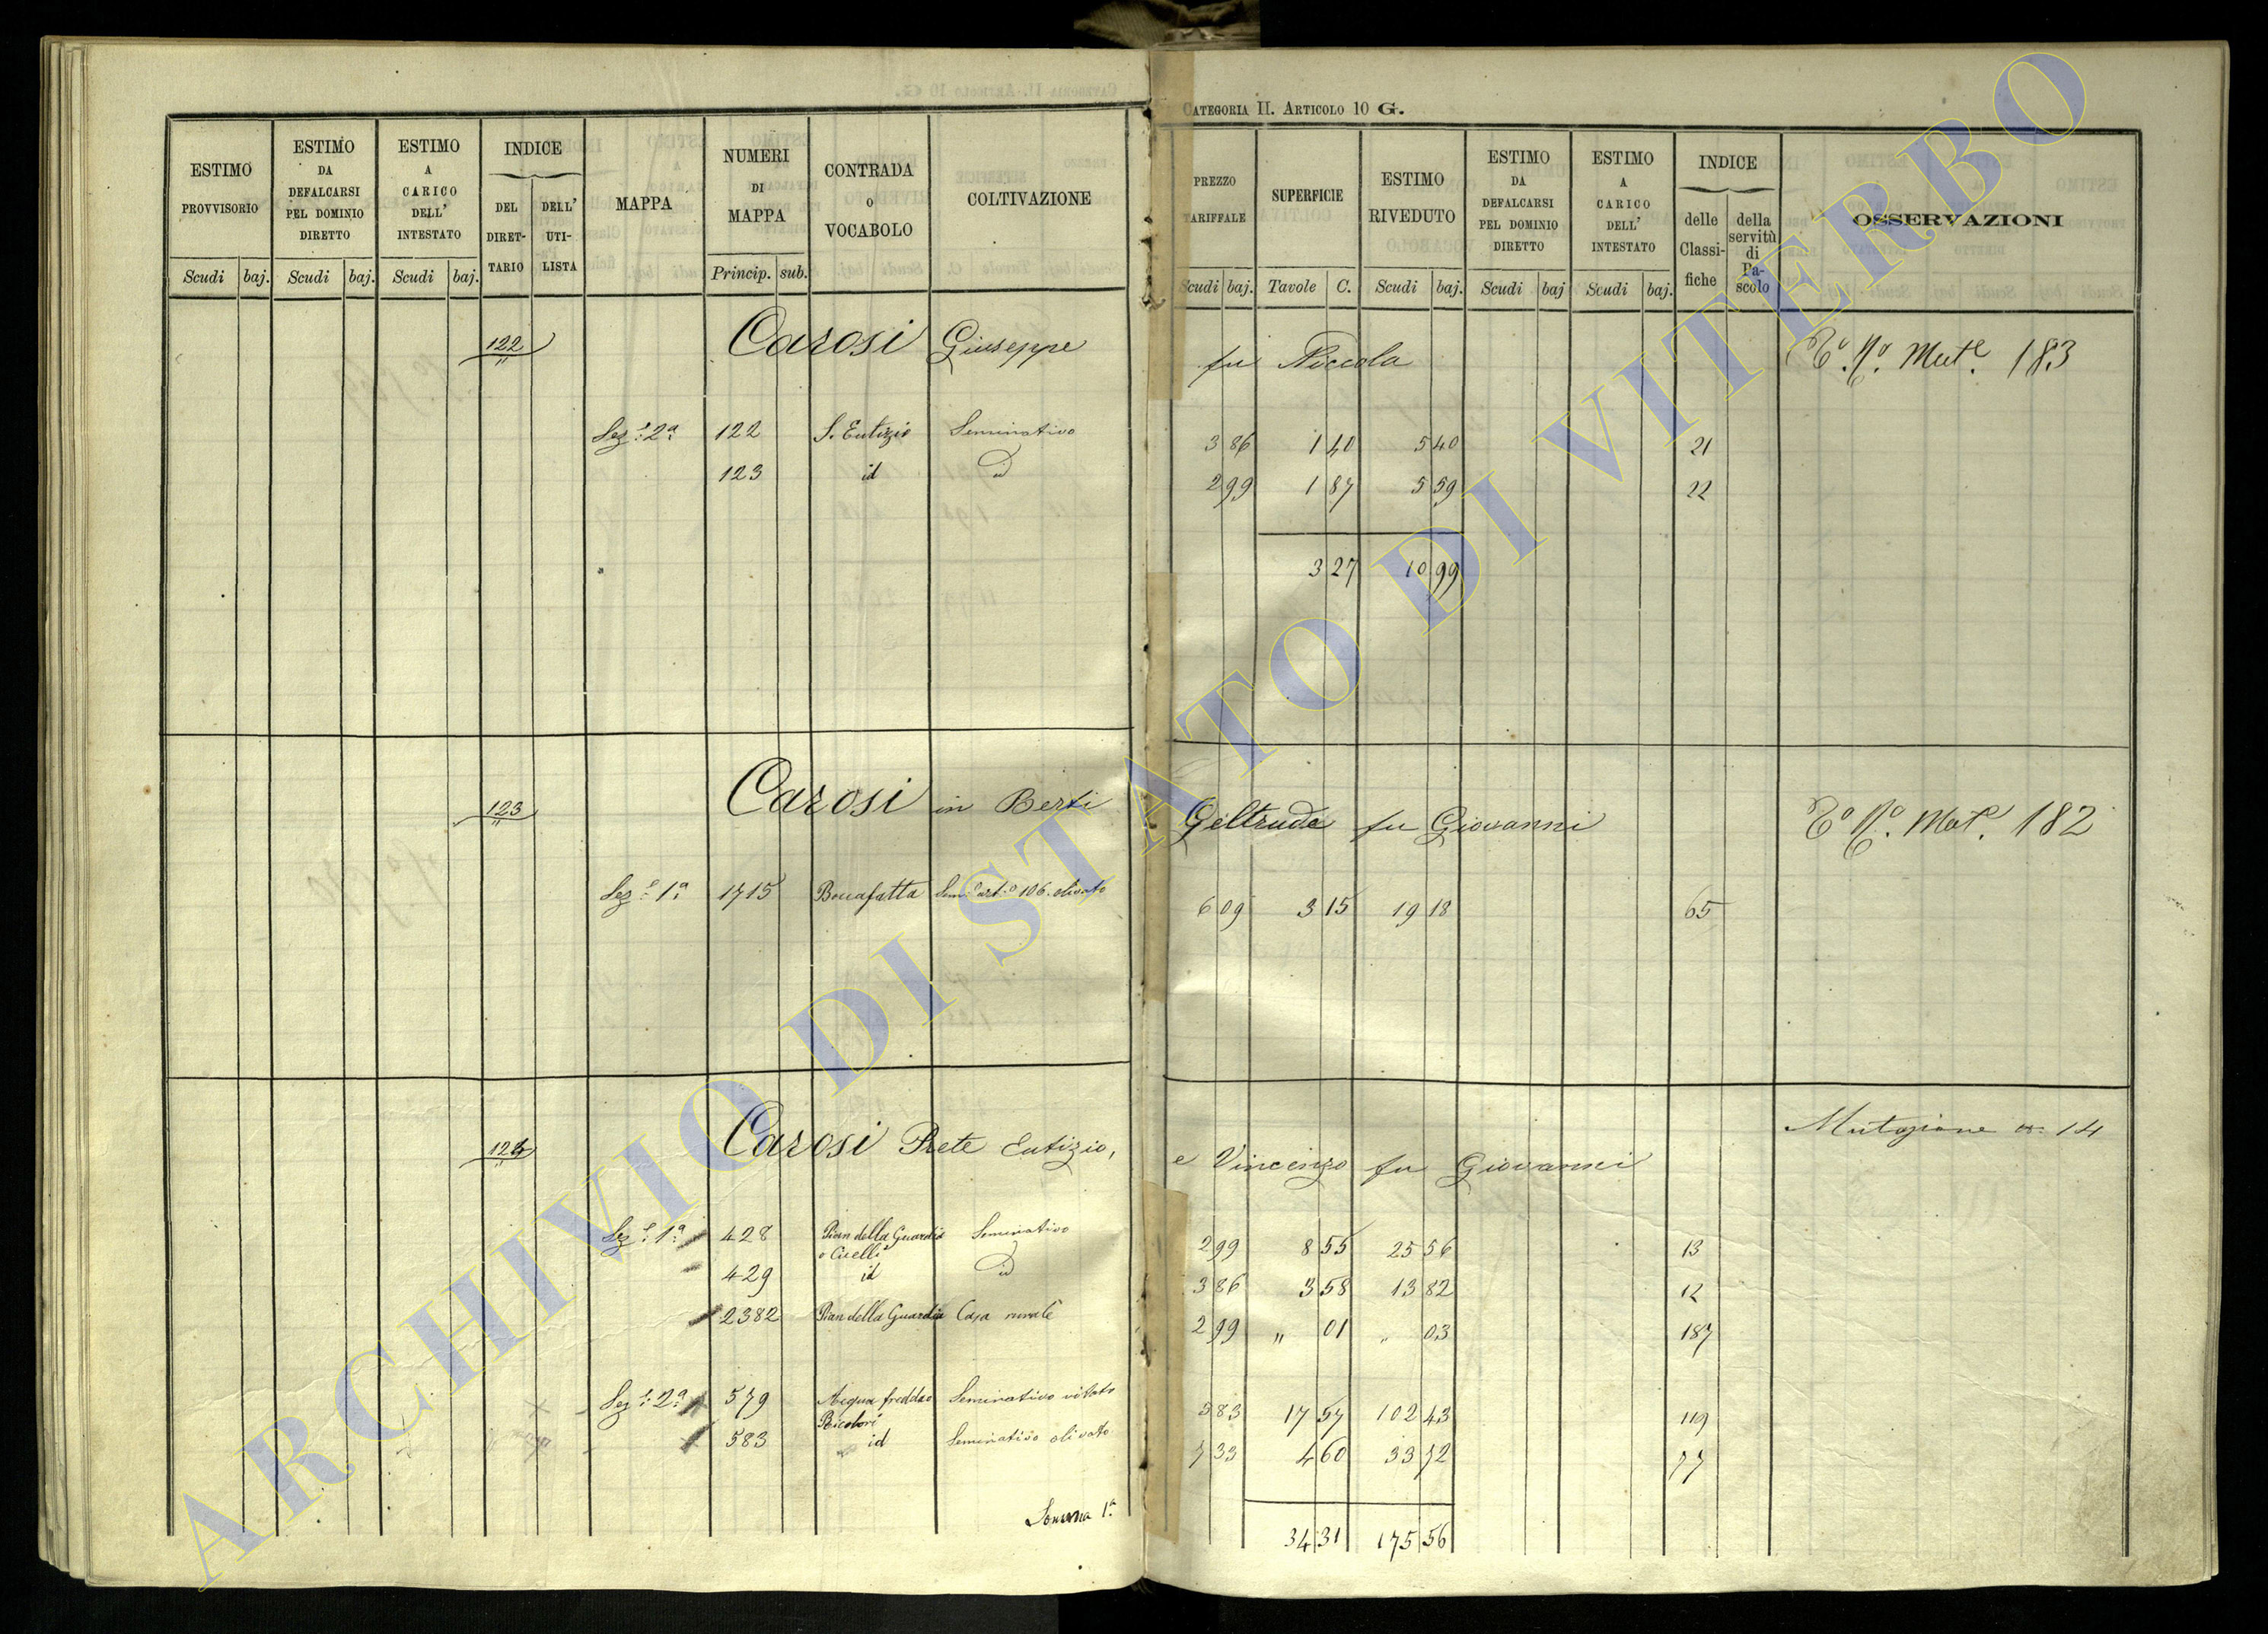 CATEGORIA II. ARTICOLO 10 G.
ESTIMO PROVVISORIO
ESTIMO DA DEFALCARSI PEL DOMINIO DIRETTO
ESTIMO A CARICO DELL' INTESTATO
INDICE
DEL DIRET-TARIO
DELL' UTI-LISTA
MAPPA
NUMERI DI MAPPA
CONTRADA o VOCABOLO
COLTIVAZIONE
PREZZO TARIFFALE
SUPERFICIE
ESTIMO RIVEDUTO
ESTIMO DA DEFALCARSI PEL DOMINIO DIRETTO
ESTIMO A CARICO DELL' INTESTATO
INDICE
delle Classi-fiche
della servitù di Pa-scolo
OSSERVAZIONI
Scudi baj. Scudi baj. Scudi baj. Princip. sub. Scudi baj. Tavole C. Scudi baj. Scudi baj Scudi baj.
122 Carosi Giuseppe fu Niccola Mut.e 183
Sez.e 2a 122 S. Eutizio Seminativo 3 86 1 40 5 40 21
123 id id 2 99 1 87 5 59 22
3 27 10 99
123 Carosi in Berti Geltrude fu Giovanni 182
Sez.e 1a 1715 olivato 6 09 3 15 19 18 65
124 Carosi Prete Eutizio, e Vincenzo fu Giovanni Mutazione 14
Sez.e 1a 428 Pian della Guardia Seminativo 2 99 8 55 25 56 13
o Cuelli
429 id id 3 86 3 58 13 82 12
2382 Pian della Guardia Casa rurale 2 99 " 01 " 03 187
Sez.e 2a 579 Acqua fredda o Seminativo vitato 5 83 17 57 102 43 119
583 id Seminativo olivato 7 33 4 60 33 72 77
Somma 1a 34 31 175 56
ARCHIVIO DI STATO DI VITERBO